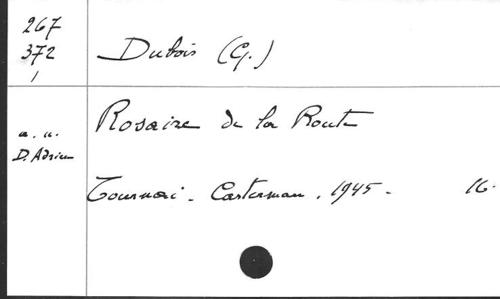 267
372
1
Dubois (G.)
Rosaire de la Route
a. u.
D. Adrien
Tournai. Casterman. 1945. 16.